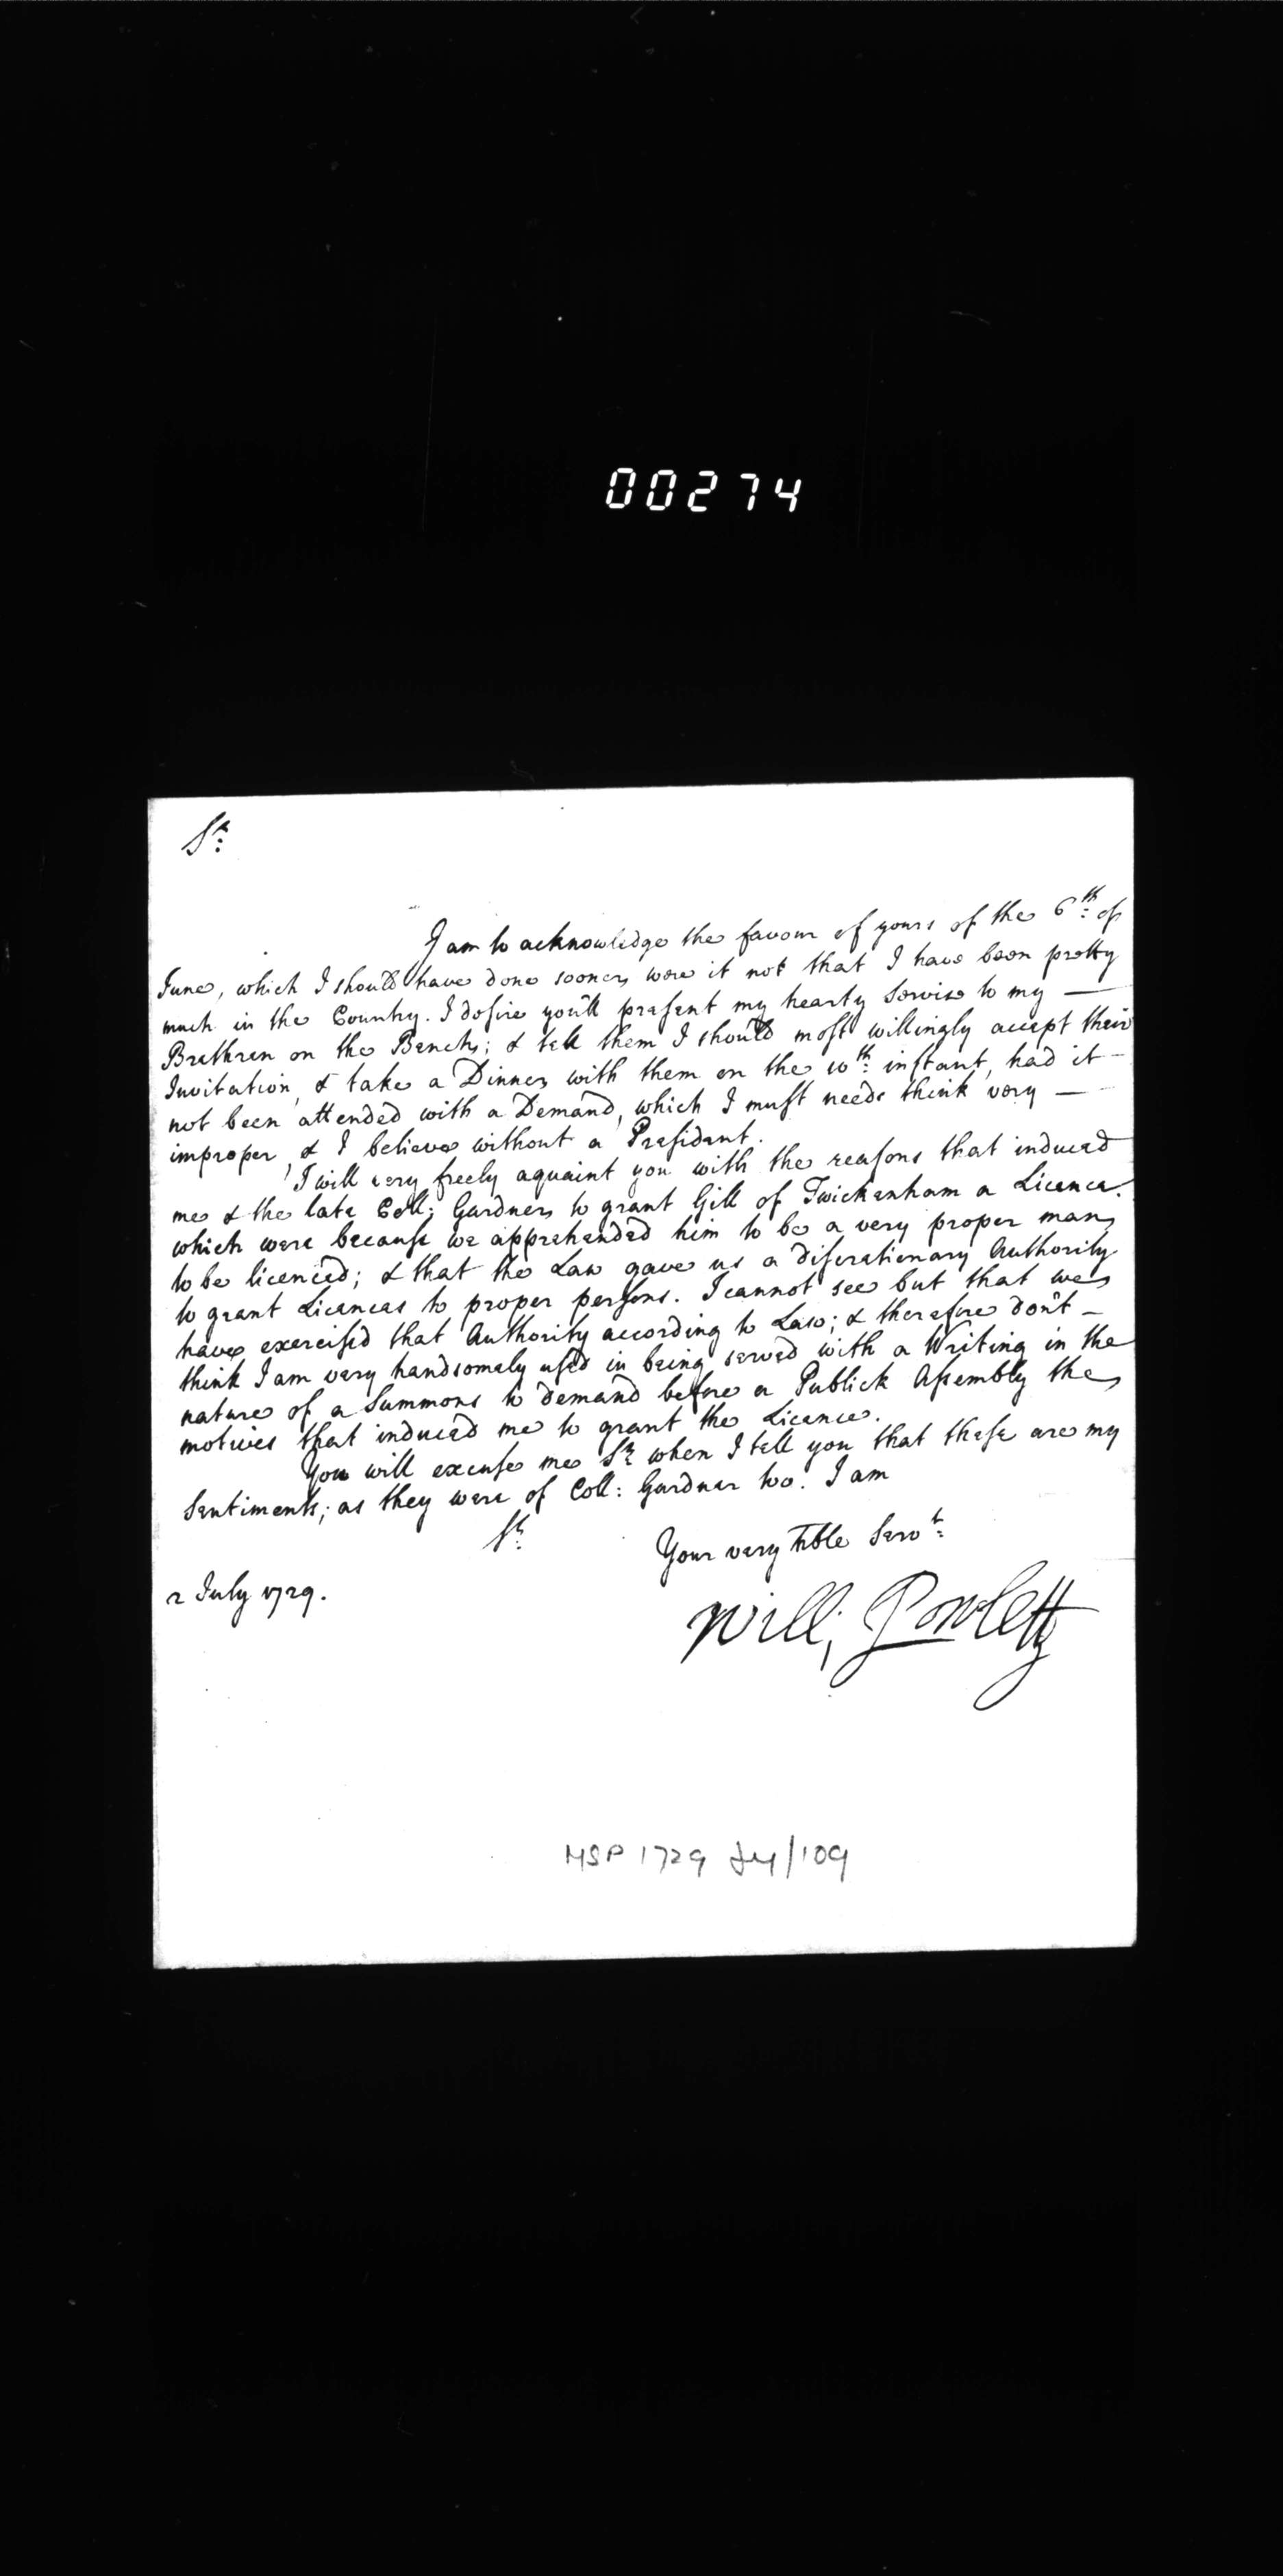 00274
Sr:
I am to acknowledge the favour of yours of the 6th: of
June, which I should have done sooner, were it not that I have been pretty
much in the Country. I desire you'll present my hearty Service to my —
Brethren on the Bench; & tell them I should most willingly accept their
Invitation, & take a Dinner with them on the 10th: instant, had it —
not been attended with a Demand, which I must needs think very —
improper, & I believe without a President.
I will very freely aquaint you with the reasons that induced
me & the late Coll: Gardner to grant Gill of Twickenham a Licence.
which were because we apprehended him to be a very proper man
to be licenced; & that the Law gave us a discretionary Authority
to grant Licences to proper persons. I cannot see but that we
have exercis'd that Authority according to Law; & therefore don't —
think I am very handsomely used in being served with a Writing in the
nature of a Summons to demand before a Publick Assembly the
motives that induced me to grant the Licence.
You will excuse me Sr when I tell you that these are my
Sentiments; as they were of Coll: Gardner too. I am
Sr:
Your very hble Servt:
2 July 1729.
Will; Powlett
MSP 1729 Jy/109